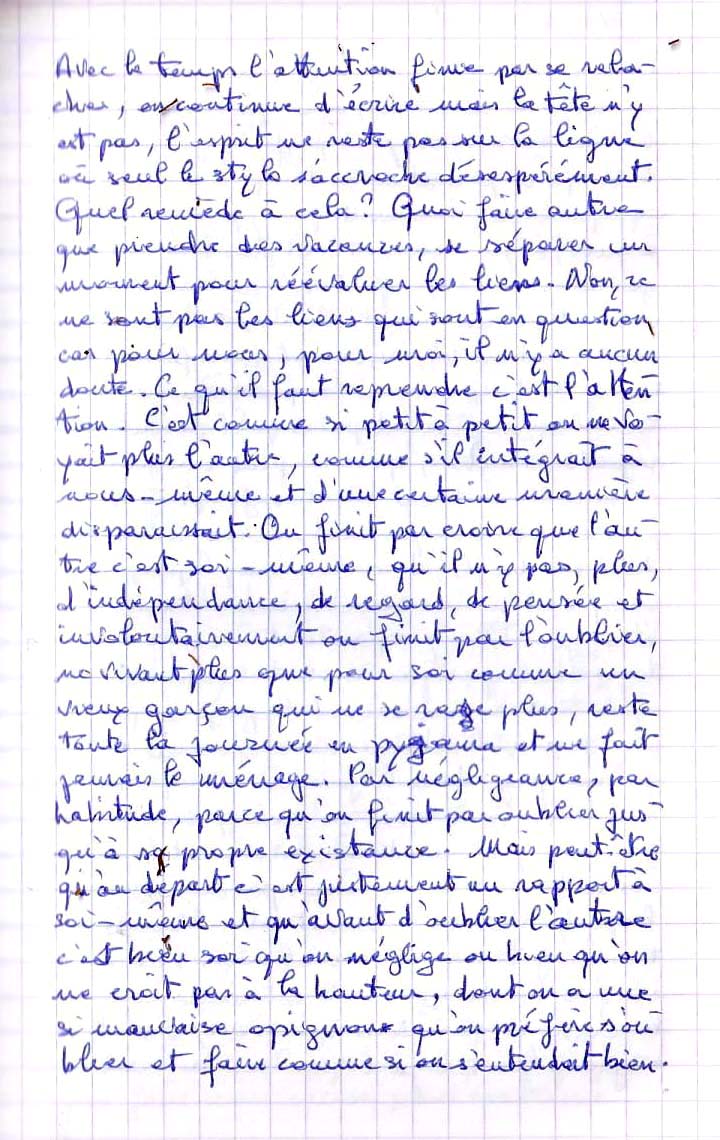 Avec le temps l'attention finie par se rela-
cher, on continue d'écrire mais la tête n'y
est pas, l'esprit ne reste pas sur la ligne
où seul le stylo s'accroche désespérément.
Quel remède à cela? Quoi faire autre
que prendre des vacances, se séparer un
moment pour réévaluer les liens. Non, ce
ne sont pas les liens qui sont en question
car pour nous, pour moi, il n'y a aucun
doute. Ce qu'il faut reprendre c'est l'atten
tion. C'est comme si petit à petit on ne vo-
yait plus l'autre, comme s'il intégrait à
nous-même et d'une certaine manière
disparaissait. On finit par croire que l'au-
tre c'est soi-même, qu'il n'y pas, plus,
d'indépendance, de regard, de pensée et
involontairement on finit par l'oublier,
ne vivant plus que pour soi comme un
vieux garçon qui ne se rase plus, reste
toute la journée en pygama et ne fait
jamais le ménage. Par négligeance, par
habitude, parce qu'on finit par oublier jus-
qu'à sa propre existance. Mais peut-être
qu'au départ c'est justement un rapport à
soi-même et qu'avant d'oublier l'autre
c'est bien soi qu'on néglige ou bien qu'on
ne croit pas à la hauteur, dont on a une
si mauvaise opignon qu'on préfère s'ou-
blier et faire comme si on s'entendait bien.